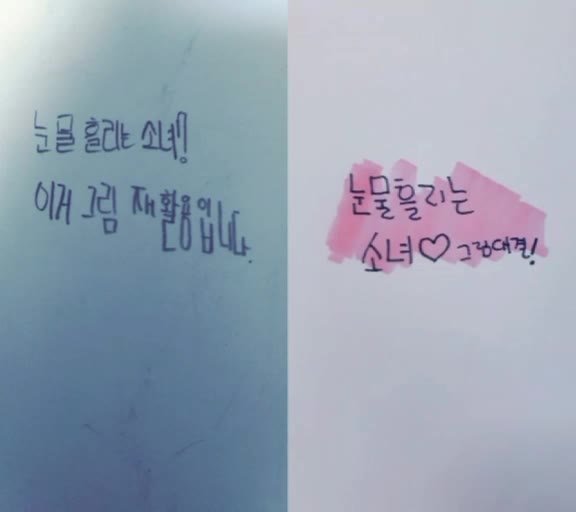 눈물 흘리는 소녀!
이거 그림 재활용입니다.
눈물흘리는
소녀♡그림대결!